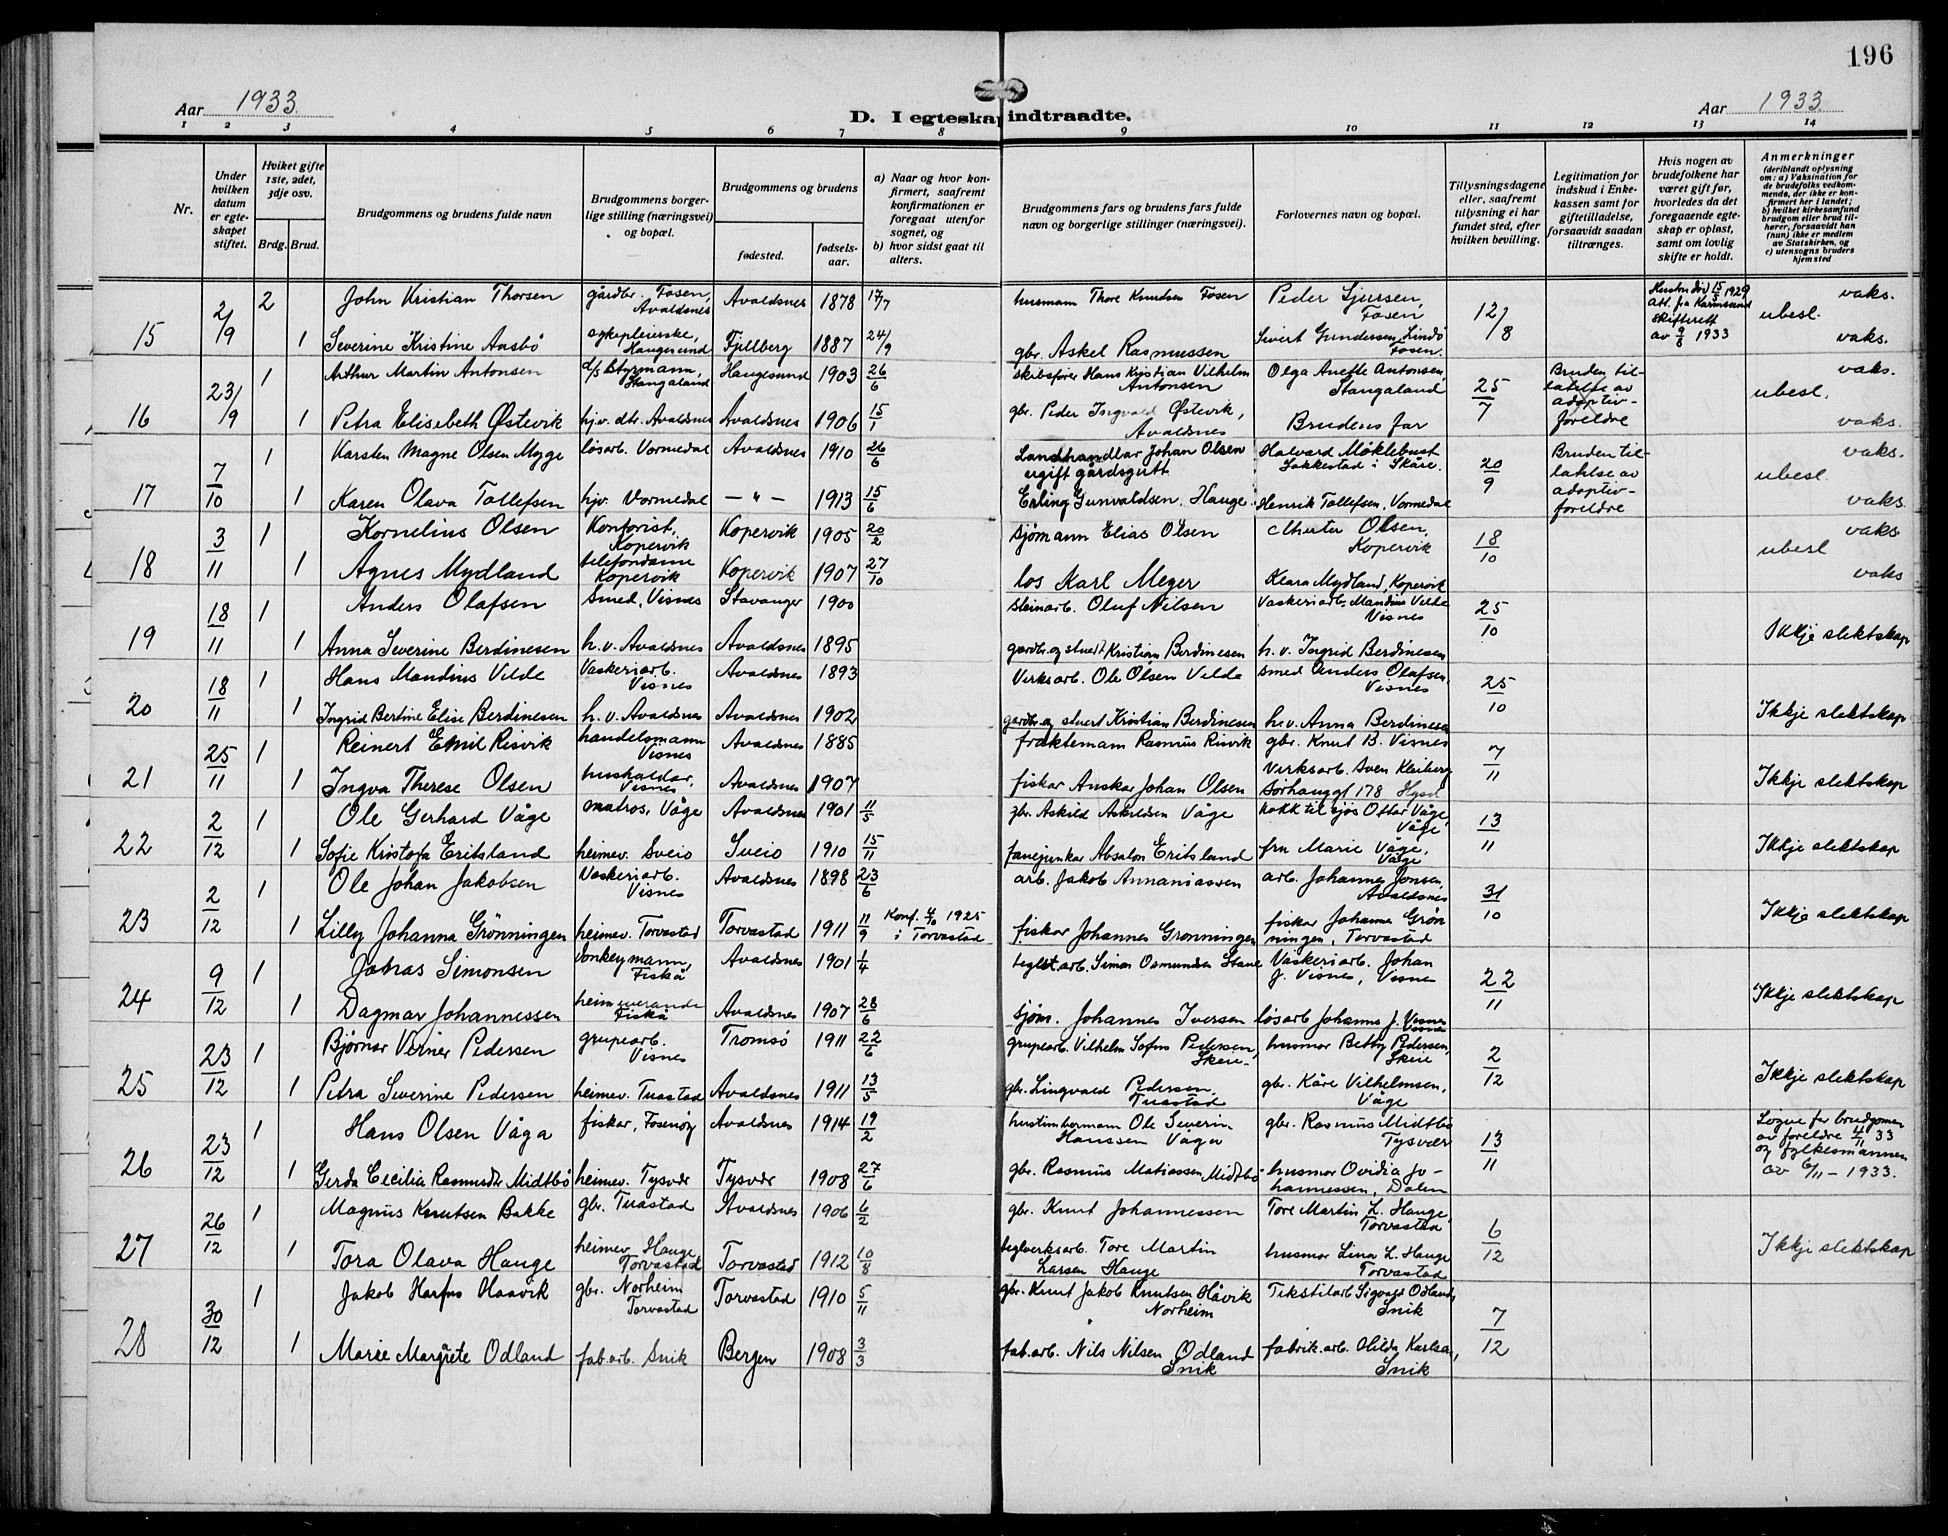 196
Aar 1933.
D. I egteskap indtraadte.
Aar 1933
1 2 3 4 5 6 7 8 9 10 11 12 13 14
Nr.
Under hvilken datum er egteskapet stiftet.
Hviket gifte 1ste, 2det, 3dje osv.
Brdg. Brud.
Brudgommens og brudens fulde navn
Brudgommens borgerlige stilling (næringsvei) og bopæl.
Brudgommens og brudens
fødested.
fødselsaar.
a) Naar og hvor konfirmert, saafremt konfirmationen er foregaat utenfor sognet, og
b) hvor sidst gaat til alters.
Brudgommens fars og brudens fars fulde navn og borgerlige stillinger (næringsvei).
Forlovernes navn og bopæl.
Tillysningsdagene eller, saafremt tillysning ei har fundet sted, efter hvilken bevilling.
Legitimation for indskud i Enkekassen samt for giftetilladelse, forsaavidt saadan tiltrænges.
Hvis nogen av brudefolkene har været gift før, hvorledes da det foregaaende egteskap er opløst, samt om lovlig skifte er holdt.
Anmerkninger
(deriblandt oplysning om: a) Vaksination for de brudefolks vedkommende, der ikke er konfirmert her i landet; b) hvilket kirkesamfund brudgom eller brud tilhører, forsaavidt han (hun) ikke er medlem av Statskirken, og c) utensogns bruders hjemsted
15 2/9 2 John Kristian Thorsen gårdbr. Fosen, Avaldsnes Avaldsnes 1878 17/7 husmann Thore Knudsen Fosen Peder Sjursen, Fosen 12/8 15/3 1929 Att. fra Karmsund skifterett av 9/8 1933 ubesl. vaks.
1 Severine Kristine Aasbö sykepleierske, Haugesund Fjellberg 1887 24/9 gbr. Askel Rasmussen Sivert Gundersen Lindö Fosen. vaks.
16 23/9 1 Arthur Martin Antonsen d/s Styrmann, Stangaland Haugesund 1903 26/6 skibsfører Hans Kristian Vilhelm Antonsen Olga Anette Antonsen, Stangaland 25/7 Bruden tillatelse av adoptivforeldre ubesl. vaks.
1 Petra Elisabeth Østevik hjv. dtr. Avaldsnes Avaldsnes 1906 15/1 gbr. Peder Ingvald Østevik, Avaldsnes Brudens far vaks.
17 7/10 1 Karsten Magne Olsen Mygge løsarb. Vormedal Avaldsnes 1910 26/6 Landhandlar Johan Olsen Halvard Möklebust Sakkestad i Skåre. 20/9 Bruden tillatelse av adoptivforeldre ubesl. vaks.
1 Karen Olava Tollefsen hjv. Vormedal — " — 1913 15/6 ugift gårdsgutt Erling Gunvaldsen, Hauge Henrik Tollefsen, Vormedal vaks.
18 3/11 1 Kornelius Olsen Kontorist, Kopervik Kopervik 1905 20/2 sjømann Elias Olsen Olsen, Kopervik 18/10 ubesl vaks
1 Agnes Mydland telefondame Kopervik Kopervik 1907 27/10 los Karl Meyer Klara Mydland, Kopervik vaks
19 18/11 1 Anders Olafsen Smed, Visnes Stavanger 1900 steinarb. Oluf Nilsen Vaskeriarb. Mandius Velde Visnes 25/10
1 Anna Severine Berdinesen h.v. Avaldsnes Avaldsnes 1895 gardbr. og stuert Kristian Berdinesen h.v. Ingrid Berdinesen Ikkje slektskap
20 18/11 1 Hans Mandius Velde Vaskeriarb. Visnes Avaldsnes 1893 Verksarb. Ole Olsen Velde smed Anders Olafsen Visnes 25/10
1 Ingrid Bertine Elise Berdinesen h.v. Avaldsnes Avaldsnes 1902 gardbr. og stuert Kristian Berdinesen h.v. Anna Berdinesen Ikkje slektskap
21 25/11 1 Reinert Emil Risvik handelsmann Visnes Avaldsnes 1885 fraktemann Rasmus Risvik gbr. Knut B. Visnes 7/11
1 Ingva Therese Olsen hushaldar, Visnes Avaldsnes 1907 fiskar Anskar Johan Olsen Verksarb. Sven Kleiberg Sørhauggt 178 Hgsd Ikkje slektskap
22 2/12 1 Ole Gerhard Våge matros, Våge Avaldsnes 1901 11/5 gbr. Askild Askildsen Våge kokk til sjøs Ottar Våge, Våge 13/11
1 Sofie Kristofa Eritsland heimev. Sveio Sveio 1910 15/11 fanejunkar Absalon Eritsland fru Marie Våge, Våge Ikkje slektskap
23 2/12 1 Ole Johan Jakobsen Vaskeriarb. Visnes Avaldsnes 1898 23/6 arb. Jakob Annaniassen arb. Johannes Jonsen, Avaldsnes 31/10
1 Lilly Johanna Grønningen heimev. Torvastad Torvastad 1911 11/9 Konf. 4/10 1925 i Torvastad fiskar Johannes Grønningen fiskar Johannes Grønningen, Torvastad Ikkje slektskap
24 9/12 1 Jonas Simonsen donkeymann, Fiskå Avaldsnes 1901 1/4 teglst.arb. Simon Osmundsen Stave Vaskeriarb. Johan J. Visnes, Visnes 22/11
1 Dagmar Johannessen heimeverande Fiskå Avaldsnes 1907 28/6 sjøm. Johannes Iversen løsarb Johannes J. Visnes Visnes Ikkje slektskap
25 23/12 1 Bjørnar Verner Pedersen grupearb. Visnes Tromsö 1911 22/6 grupearb. Vilhelm Sofus Pedersen, Skeie husmor Betty Pedersen, Skeie 2/12
1 Petra Severine Pedersen heimev. Tuastad Avaldsnes 1911 13/5 gbr. Lingvald Pedersen, Tuastad gbr. Kåre Vilhelmsen, Våge Ikkje slektskap
26 23/12 1 Hans Olsen Våga fiskar, Fosenøy Avaldsnes 1914 19/2 hustimbermann Ole Severin Hanssen Våga gbr. Rasmus Midtbö Tysvær 13/11 Løyve for brudgomen av foreldre 4/11 33 og fylkesmannen av 6/11 – 1933.
1 Gerda Cecilia Rasmusdtr Midtbö heimev. Tysvær Tysvær 1908 27/6 gbr. Rasmus Matiassen Midtbö husmor Ovidia Johannessen, Dalen
27 26/12 1 Magnus Knutsen Bakke gbr. Tuastad Avaldsnes 1906 6/2 gbr. Knut Johannessen Tore Martin L. Hauge, Torvastad 6/12
1 Tora Olava Hauge heimev. Hauge, Torvastad Torvastad 1912 10/8 teglverksarb. Tore Martin Larsen Hauge husmor Lina L. Hauge Torvastad Ikkje slektskap
28 30/12 1 Jakob Haavik gbr. Norheim Torvastad Torvastad 1910 5/11 gbr. Knut Jakob Knutsen Håvik Norheim Tekstilarb Sigvald Odland, Snik 7/12
1 Marie Margrete Odland fab.arb. Snik Bergen 1908 3/3 fab.arb. Nils Nilsen Odland Snik fabrik.arb. Hilda Karlsen, Snik